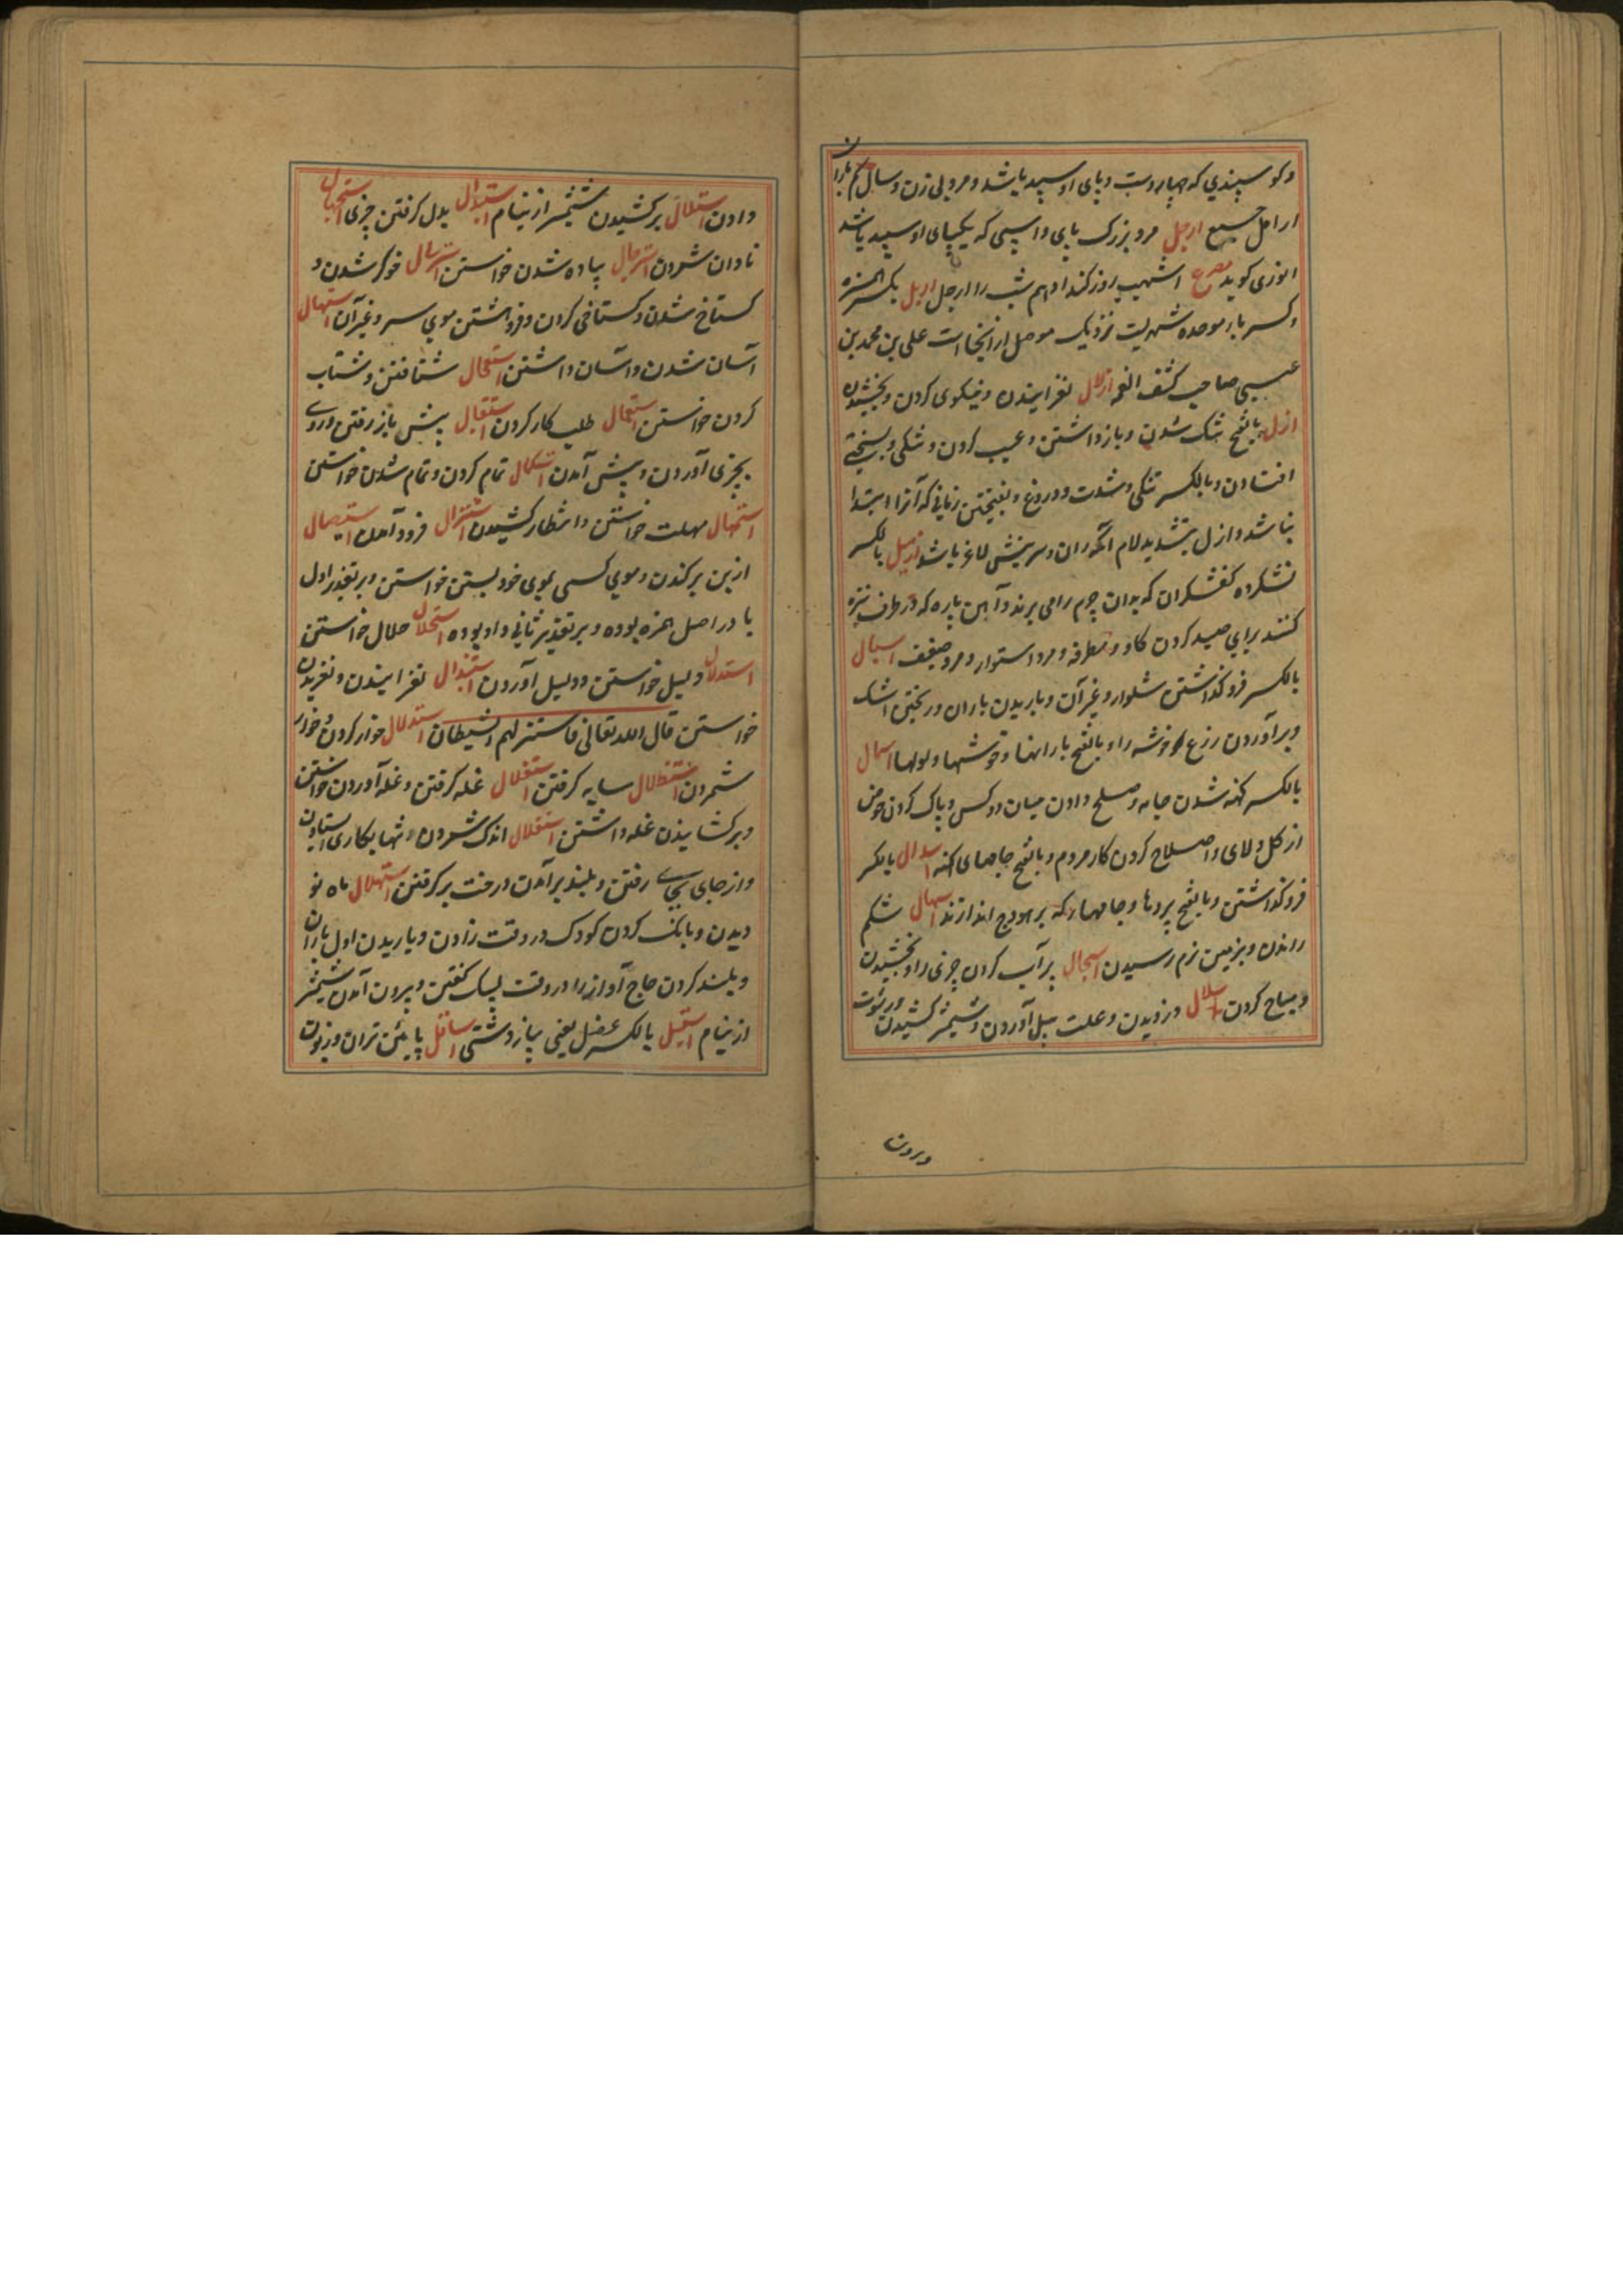 وکوسپندی که چهار دست و پای او سپید باشد و مرد بی زن و سال کم باران
ارامل جمع ارجل مرد بزرک پای و اسپی که یکپای او سپید باشد
انوری کوید مصرع اشهب روز کند ادهم شب را ارجل اربل بکسر الهمزه
وکسر باء موحده شهریست نزدیک موصل از انجا است علی بن محمد بن
عیسی صاحب کشف الغمه ازلال لغزانیدن و نیکوی کردن و بخشیدن
ازل بالفتح تنک شدن و بازداشتن و عیب کردن و تنکی و بسختی
افتادن و بالکسر تنکی و شدت و دروغ و بفتحتین زمانی که آنرا ابتدا
نباشد و ازل بتشدید لام آنکه ران و سرینش لاغر باشد ازمیل بالکسر
نشکرده کفشکران که بدان چرم را می برند و آهن پاره که در طرف نیزه
کنند برای صید کردن کاو و مطرقه و مرد استوار و مرد ضعیف اسبال
بالکسر فروکذاشتن شلوار و غیر آن و باریدن باران و ریختن اشک
و برآوردن زرع خوشه را و بالفتح بارانها و خوشها و لولها اسمال
بالکسر کهنه شدن جامه و صلح دادن میان دو کس و پاک کردن حوض
از کل و لای و اصلاح کردن کار مردم و بالفتح جامهای کهنه اسدال بالکسر
فروکذاشتن و بالفتح پردها و جامها که بر هودج اندازند اسهال شکم
راندن و بزمین نرم رسیدن اسجال پر آب کردن چیزی را و بخشیدن
و مباح کردن اسلال دزدیدن و علت سل آوردن و شمشیر کشیدن و رشوت
دادن استلال برکشیدن شمشیر از نیام استبدال بدل کرفتن چیزی استجهال
نادان شمردن استرجال پیاده شدن خواستن استرسال خوکر شدن و
کستاخ شدن و کستاخی کردن و فروهشتن موی سر و غیر آن استسهال
آسان شدن و آسان داشتن استعجال شتافتن و شتاب
کردن خواستن استعمال طلب کار کردن استقبال پیش باز رفتن و روی
بچیزی آوردن و پیش آمدن استکمال تمام کردن و تمام شدن خواستن
استمهال مهلت خواستن و انتظار کشیدن استنزال فرود آمدن استیصال
از بن برکندن و موی کسی بموی خود بستن خواستن و بر تقدیر اول
یا در اصل همزه بوده و بر تقدیر ثانی واو بوده استحلال حلال خواستن
استدلال دلیل خواستن و دلیل آوردن استزلال لغزانیدن و لغزیدن
خواستن قال الله تعالی فاستنزلهم الشیطان استذلال خوار کردن و خوار
شمردن استظلال سایه کرفتن استغلال غله کرفتن و غله آوردن خواستن
و برکشانیدن غله داشتن استقلال اندک شمردن و تنها بکاری ایستادن
و از جای بجایی رفتن و بلند برآمدن درخت برکرفتن استهلال ماه نو
دیدن و بانک کردن کودک در وقت زادن و باریدن اول باران
و بلند کردن حاج آواز را در وقت لبیک کفتن و بیرون آمدن شمشیر
از نیام اسقیل بالکسر عنصل یعنی پیاز دشتی اسافل پایئن تران و زبون